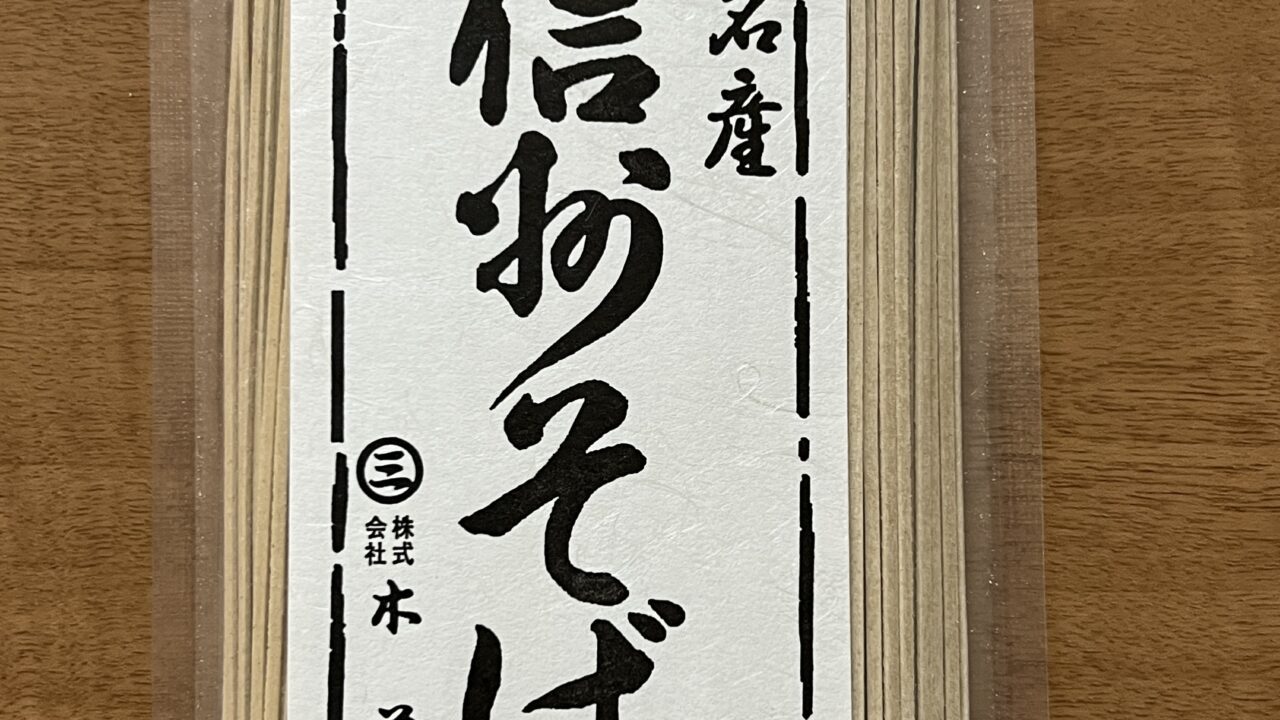 名産
信州そば
㊂
株式
会社
木